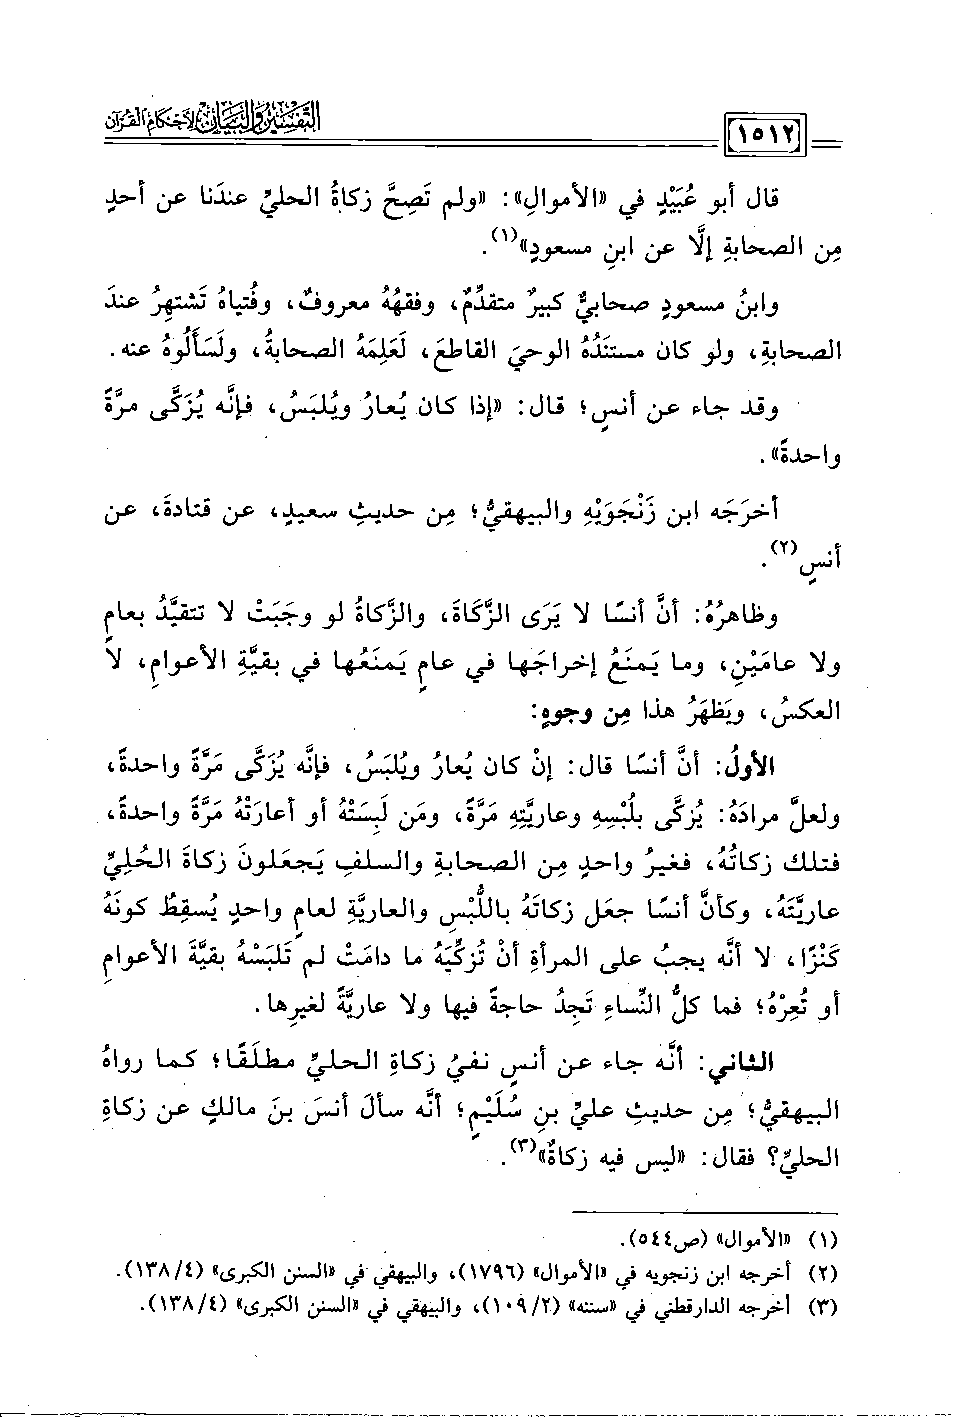 التفسير والبيان لأحكام القرآن
١٥١٢
قال أبو عُبَيْدٍ في «الأموالِ»: «ولم تَصِحَّ زكاةُ الحليِّ عندَنا عن أحدٍ
مِن الصحابةِ إلَّا عن ابنِ مسعودٍ»(١).
وابنُ مسعودٍ صحابيٌّ كبيرٌ متقدِّمٌ، وفقهُهُ معروفٌ، وفُتياهُ تَشتهِرُ عندَ
الصحابةِ، ولو كان مستنَدُهُ الوحيَ القاطعَ، لَعَلِمَهُ الصحابةُ، ولَسَأَلُوهُ عنه.
وقد جاء عن أنسٍ؛ قال: «إذا كان يُعارُ ويُلبَسُ، فإنَّه يُزَكَّى مرَّةً
واحدةً».
أخرَجَه ابن زَنْجَوَيْهِ والبيهقيُّ؛ مِن حديثِ سعيدٍ، عن قتادةَ، عن
أنسٍ(٢).
وظاهرُهُ: أنَّ أنسًا لا يَرَى الزَّكَاةَ، والزَّكاةُ لو وجَبَتْ لا تتقيَّدُ بعامٍ
ولا عامَيْنِ، وما يَمنَعُ إخراجَها في عامٍ يَمنَعُها في بقيَّةِ الأعوامِ، لا
العكسُ، ويَظهَرُ هذا مِن وجوهٍ:
الأولُ: أنَّ أنسًا قال: إنْ كان يُعارُ ويُلبَسُ، فإنَّه يُزَكَّى مَرَّةً واحدةً،
ولعلَّ مرادَهُ: يُزكَّى بلُبْسِهِ وعاريَّتِهِ مَرَّةً، ومَن لَبِسَتْهُ أو أعارَتْهُ مَرَّةً واحدةً،
فتلك زكاتُهُ، فغيرُ واحدٍ مِن الصحابةِ والسلفِ يَجعَلونَ زكاةَ الحُليِّ
عاريَّتَهُ، وكأنَّ أنسًا جعَل زكاتَهُ باللُّبْسِ والعاريَّةِ لعامٍ واحدٍ يُسقِطُ كونَهُ
كَنْزًا، لا أنَّه يجبُ على المرأةِ أنْ تُزكِّيَهُ ما دامَتْ لم تَلبَسْهُ بقيَّةَ الأعوامِ
أو تُعِرْهُ؛ فما كلُّ النِّساءِ تَجِدُ حاجةً فيها ولا عاريَّةً لغيرِها.
الثاني: أنَّه جاء عن أنسٍ نفيُ زكاةِ الحليِّ مطلَقًا؛ كما رواهُ
البيهقيُّ؛ مِن حديثِ عليِّ بنِ سُلَيْمٍ؛ أنَّه سأَلَ أنسَ بنَ مالكٍ عن زكاةِ
الحليِّ؟ فقال: «ليس فيه زكاةٌ»(٣).
(١) «الأموال» (ص٥٤٤).
(٢) أخرجه ابن زنجويه في «الأموال» (١٧٩٦)، والبيهقي في «السنن الكبرى» (١٣٨/٤).
(٣) أخرجه الدارقطني في «سننه» (١٠٩/٢)، والبيهقي في «السنن الكبرى» (١٣٨/٤).